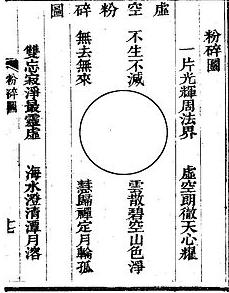 粉碎圖
虛空粉碎圖
一片光輝周法界　虛空朗徹天心耀
不生不滅　雲散碧空山色淨
無去無來　慧歸禪定月輪孤
雙忘寂淨最靈虛　海水澄清潭月溶
粉碎圖